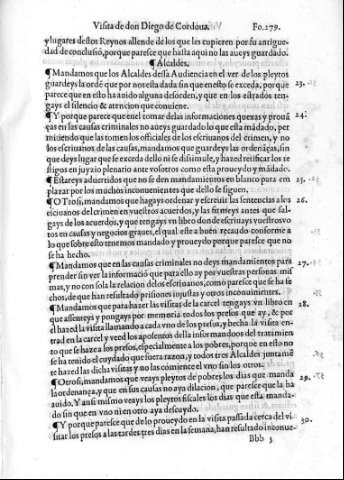 Visita de don Diego de Cordoua. Fo. 279.
y lugares destos Reynos allende de los que les cupieren por su antigue-
dad de conclusió, porque parece que hasta aqui no las aueys guardado.
¶ Alcaldes.
¶ Mandamos que los Alcaldes dessa Audiencia en el ver de los pleytos
guardeys la ordē que por nos esta dada sin que en esto se exceda, por que
parece que en esto ha auido alguna desorden, y que en los estrados ten-
gays el silencio & atencion que conuiene.
23.
¶ Y porque parece que en el tomar delas informaciones quexas y prouā
ças en las causas criminales no aueys guardado lo que esta mādado, per
mitiendo que las tomen los officiales de los escriuanos del crimen, y no
los escriuanos de las causas, mandamos que guardeys las ordenāças, sin
que deys lugar que se exceda dello ni se dissimule, y hazed retificar los te
stigos en juyzio plenario ante vosotros como esta proueydo y mādado.
24.
¶ Estareys aduertidos que no se den mandamientos en blanco para em
plazar por los muchos inconuenientes que dello se siguen.
25.
¶ Otrosi, mandamos que hagays ordenar y escreuir las sentencias a los
escriuanos del crimen en vuestros acuerdos, y las firmeys antes que sal-
gays de los acuerdos, y que tengays vn libro donde escriuays vuestros vo
tos en causas y negocios graues, el qual este a buē recaudo conforme a
lo que sobre esto tenemos mandado y proueydo porque parece que no
se ha hecho.
26.
¶ Mandamos que en las causas criminales no deys mandamientos para
prender sin ver la información que para ello ay por vuestras personas mis
mas, y no con sola la relacion delos escriuanos, como parece que se ha fe
cho, de que han resultado prisiones injustas y otros inconuinientes.
27.
¶ Mandamos que para hazer las visitas de la carcel tengays vn libro en
que assenteys y pongays por memoria todos los presos que ay, & por
el hazed la visita llamando a cada vno de los presos, y hecha la visita en-
trad en la carcel y veed los aposentos della informandoos del tratamien
to que se haze a los presos, especialmente a los pobres, porque en esto no
se ha tenido el cuydado que fuera razon, y todos tres Alcaldes juntamē
te hazed las dicha visitas y no las comience el vno sin los otros.
28.
¶ Otrosi, mandamos que veays pleytos de pobres los dias que manda
la ordenança, y que en sus causas no aya dilacion, que parece que la ha
auido. Y ansi mismo veays los pleytos fiscales los dias que esta manda-
do sin que en vno ni en otro aya descuydo.
29.
¶ Y porque parece que de lo proueydo en la visita passada cerca del vi-
sitar los presos a las tardes tres dias en la semana, han resultado inconue-
30.
Bbb 3